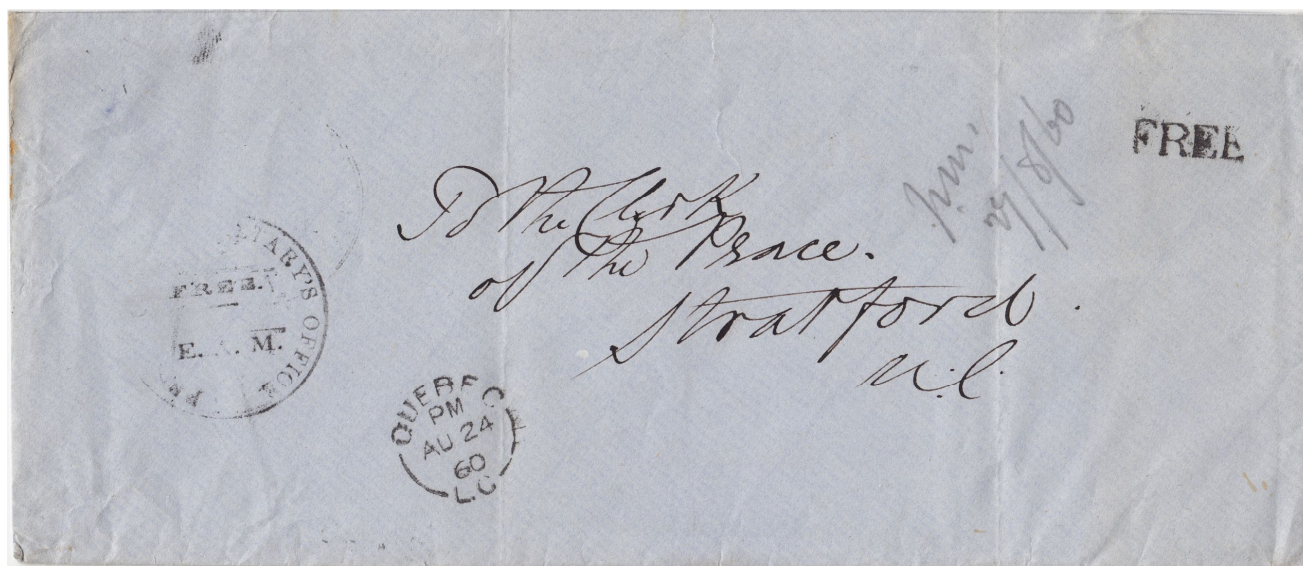 FREE
27/8/60
To the Clerk
of the Peace.
Stratford.
U.C.
TARY'S OFFICE
FREE.
E. M.
QUEBEC
PM
AU 24
60
L.C